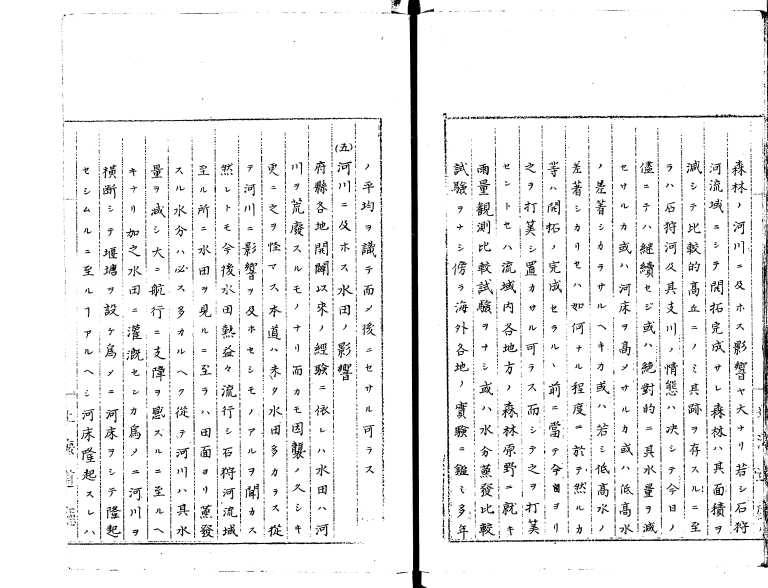 森林ノ河川ニ及ホス影響ヤ大ナリ若シ石狩
河流域ニシテ開拓完成サレ森林ハ其面積ヲ
減シテ比較的高丘ニノミ其跡ヲ存スルニ至
ラハ石狩河及其支川ノ情態ハ决シテ今日ノ
儘ニテハ継續セジ或ハ絶對的ニ其水量ヲ減
セサルカ或ハ河床ヲ高メサルカ或ハ低高水
ノ差著シカラサルヘキカ或ハ若シ低高水ノ
差著シカリセハ如何ナル程度ニ於テ然ルカ
等ハ開拓ノ完成セラルヽ前ニ當テ今日ヨリ
之ヲ打算シ置カサル可ラス而シテ之ヲ打算
セントセハ流域内各地方ノ森林原野ニ就キ
雨量観測比較試驗ヲナシ或ハ水分蒸發比較
試驗ヲナシ傍ラ海外各地ノ實驗ニ鑑ミ多年
ノ平均ヲ識テ而メ後ニセサル可ラス
(五)河川ニ及ホス水田ノ影響
府縣各地開闢以来ノ經驗ニ依レハ水田ハ河
川ヲ荒廢スルモノナリ而カモ因襲ノ久シキ
更ニ之ヲ怪マス本道ハ未タ水田多カラス従
テ河川ニ影響ヲ及ホセシモノアルヲ聞カス
然レトモ今後水田熱益々流行シ石狩河流域
至ル所ニ水田ヲ見ルニ至ラハ田面ヨリ蒸發
スル水分ハ必ス多カルヘク従テ河川ハ其水
量ヲ減シ大ニ航行ニ支障ヲ感スルニ至ルヘ
キナリ加之水田ニ灌漑センカ為メニ河川ヲ
横断シテ堰塘ヲ設ケ為メニ河床ヲシテ隆起
セシムルニ至ルヿアルヘシ河床隆起スレハ
北海道廳